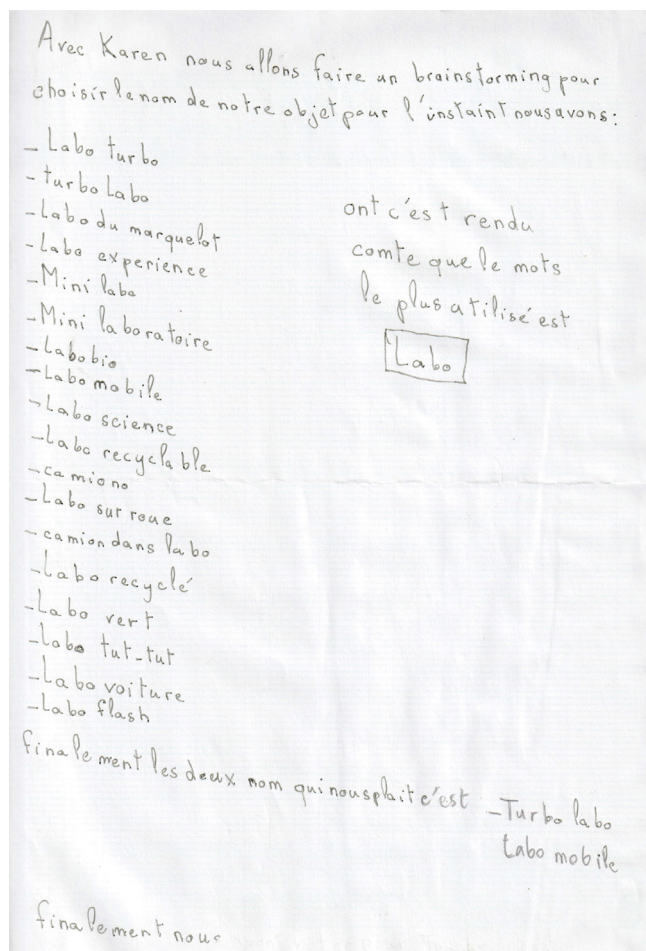 Avec Karen nous allons faire un brainstorming pour
choisir le nom de notre objet pour l'instaint nous avons:
- Labo turbo
- turbo Labo
- Labo du marquelot
- Labo experience
- Mini labo
- Mini laboratoire
- Labobio
- Labo mobile
- Labo science
- Labo recyclable
- camiono
- Labo sur roue
- camion dans labo
- Labo recyclé
- Labo vert
- Labo tut-tut
- Labo voiture
- Labo flash
ont c'est rendu
comte que le mots
le plus utilisé est
Labo
finalement les deux nom qui nous plait c'est - Turbo labo
Labo mobile
finalement nous